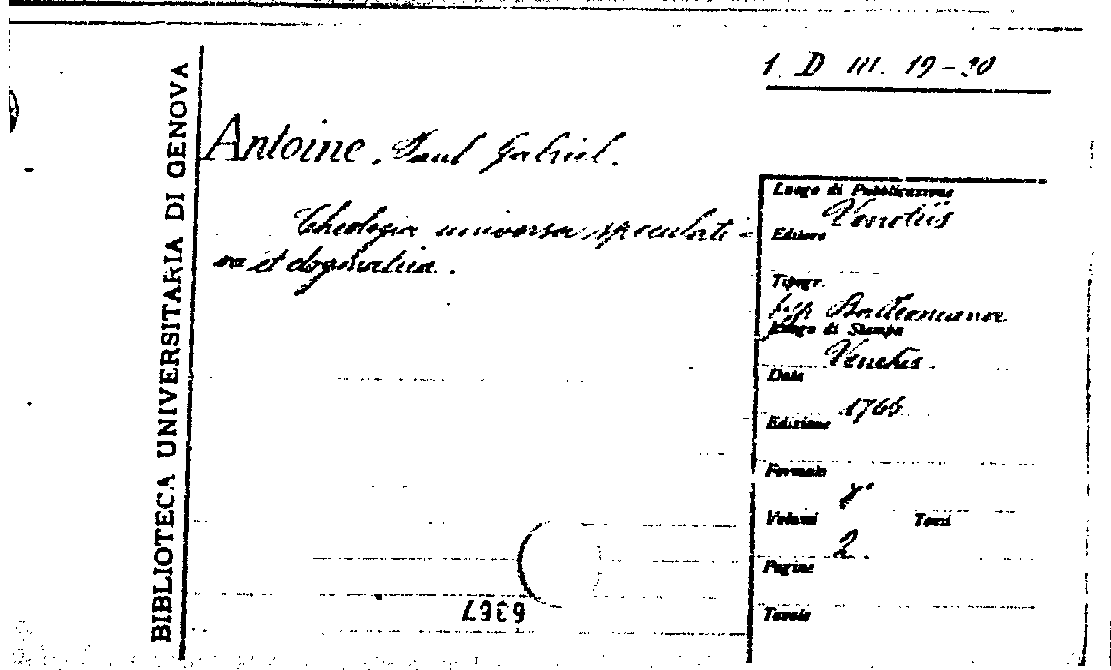 1. D III. 19-20
BIBLIOTECA UNIVERSITARIA DI GENOVA
Antoine, Paul Gabriel.
Theologia universa speculati-
va et dogmatica.
Luogo di Pubblicazione
Venetiis
Editore
Tipogr.
typ. Balleoniana
Luogo di Stampa
Venetiis
Data
1766
Edizione
Formato
8°
Volumi Tomi
2.
Pagine
Tavole